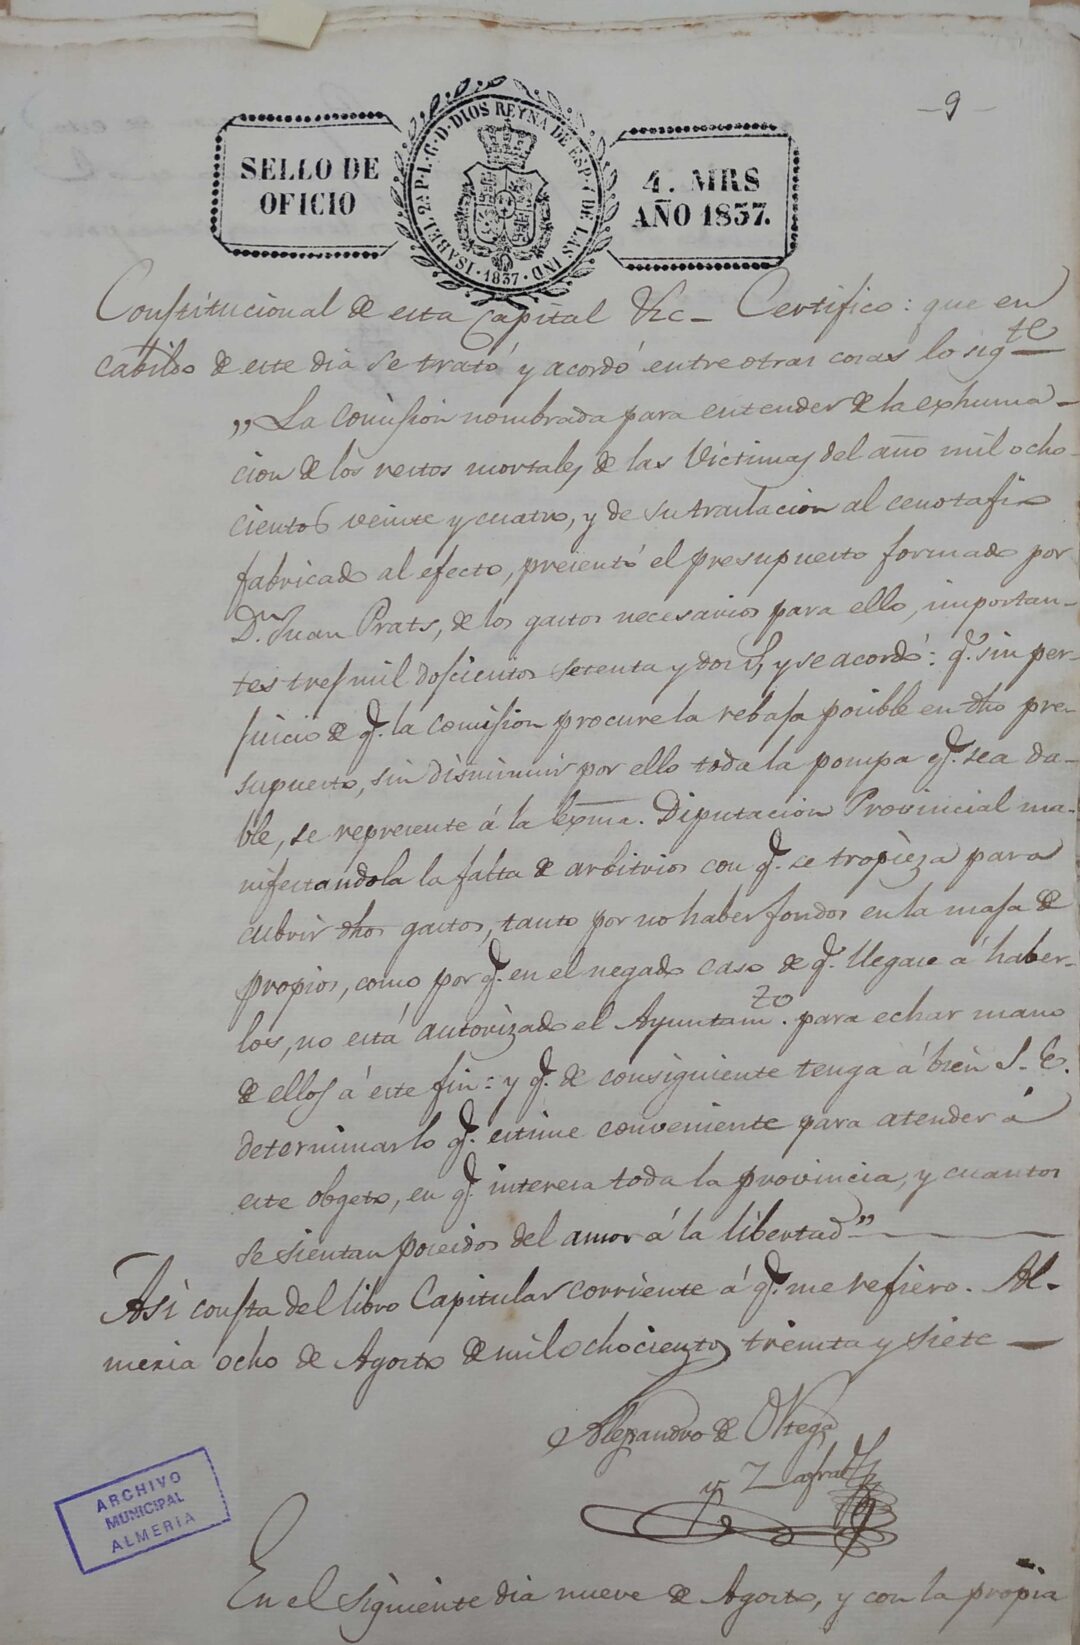 -9-
SELLO DE OFICIO
ISABEL 2ª P. L. G. D. DIOS REYNA DE ESP. Y DE LAS IND
1837
4. MRS
AÑO 1837.
Constitucional de esta Capital &c- Certifico: que en
cabildo de este dia se trató y acordó entre otras cosas lo sigte
"La Comision nombrada para entender de la exhuma-
cion de los restos mortales de las Victimas del año mil ocho-
cientos veinte y cuatro, y de su traslacion al cenotafio
fabricado al efecto, presentó el presupuesto formado por
Dn. Juan Prats, de los gastos necesarios para ello, importan-
tes tres mil doscientos setenta y dos rs, y se acordó: q. sin per-
juicio de q. la comision procure la rebaja posible en dho pre-
supuesto, sin disminuir por ello toda la pompa q. sea da-
ble, se represente á la Exma. Diputacion Provincial ma-
nifestandola la falta de arbitrios con q. se tropieza para
cubrir dhos gastos, tanto por no haber fondos en la masa de
propios, como por q. en el negado caso de q. llegase á haber-
los, no está autorizado el Ayuntamto. para echar mano
de ellos á este fin: y q. de consiguiente tenga á bien S. E.
determinar lo q. estime conveniente para atender á
este obgeto, en q. interesa toda la provincia, y cuantos
se sientan poseidos del amor á la libertad"
Asi consta del libro Capitular corriente á q. me refiero. Al-
meria ocho de Agosto de mil ochocientos treinta y siete
Alejandro de Ortega
y Zafra
ARCHIVO
MUNICIPAL
ALMERIA
En el siguiente dia nueve de Agosto, y con la propia